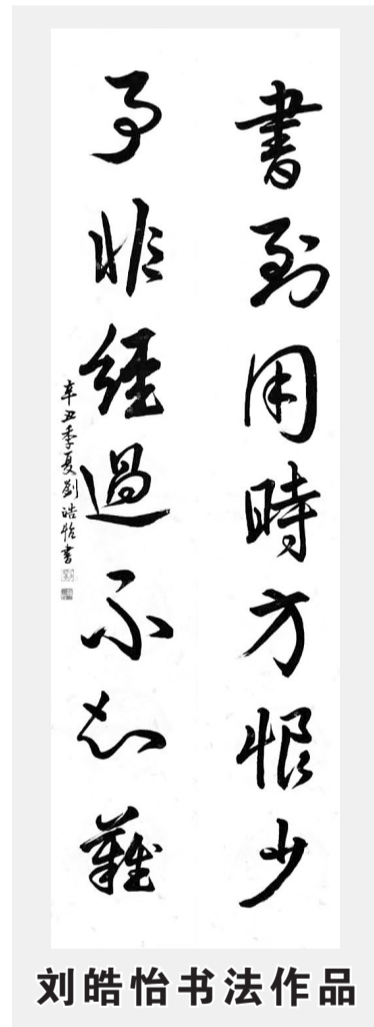 書到用時方恨少
事非經過不知難
辛丑季夏劉皓怡書
刘皓怡书法作品